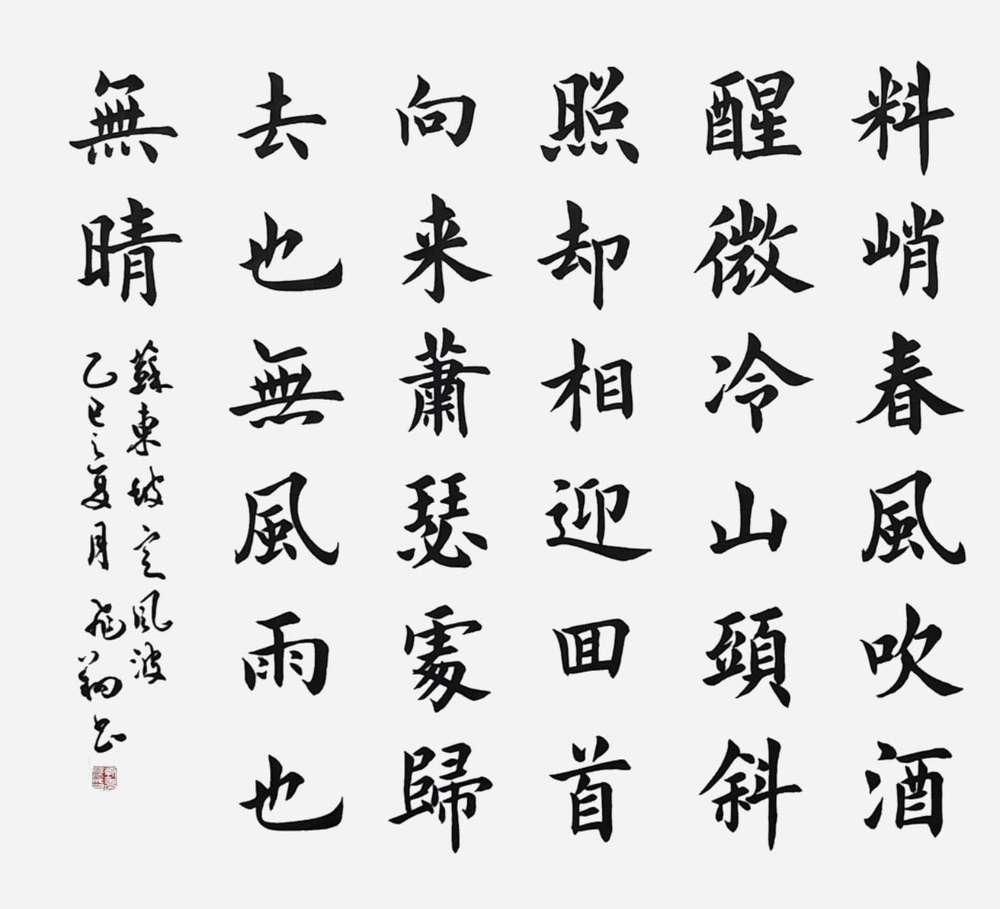 料峭春風吹酒
醒微冷山頭斜
照却相迎回首
向来蕭瑟處歸
去也無風雨也
無晴
蘇東坡定風波
乙巳之夏月飛翔书